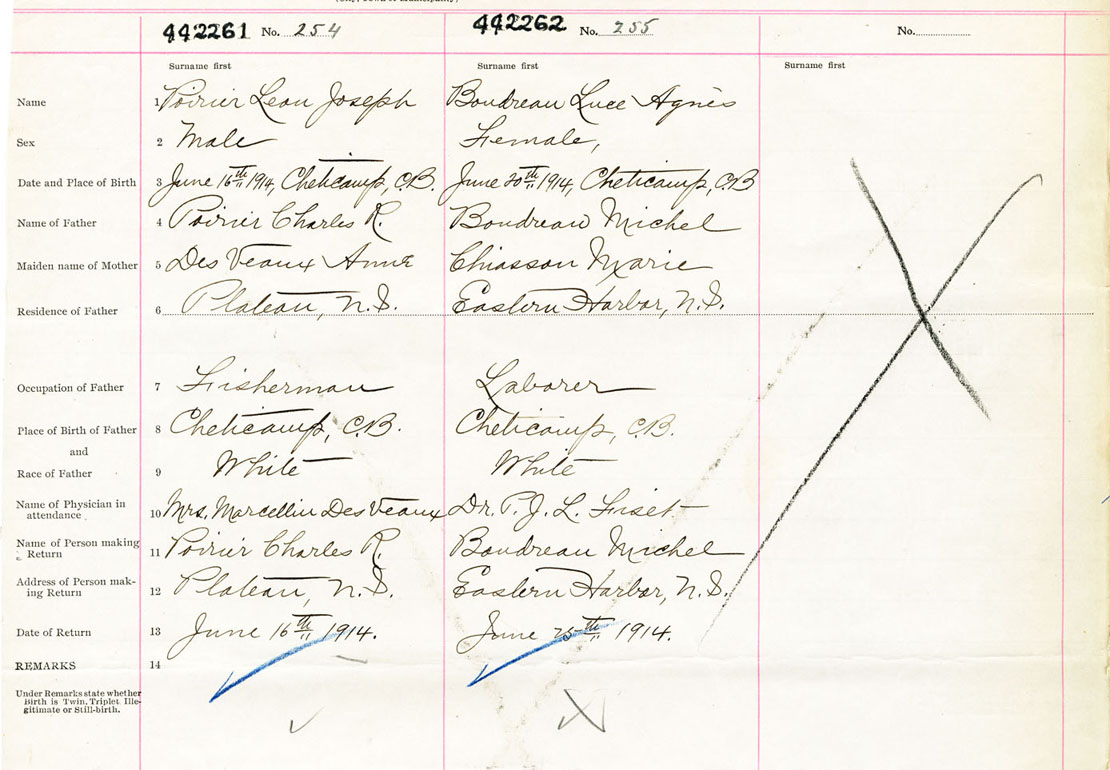 442261 No. 254 442262 No. 255 No.
Surname first Surname first Surname first
Name 1 Poirier Leon Joseph Boudreau Luce Agnès
Sex 2 Male Female,
Date and Place of Birth 3 June 16th 1914, Cheticamp, C.B. June 20th 1914, Cheticamp, C.B
Name of Father 4 Poirier Charles R. Boudreau Michel
Maiden name of Mother 5 DesVeaux Anne Chiasson Marie
Residence of Father 6 Plateau, N.S. Eastern Harbor, N.S.
Occupation of Father 7 Fisherman Laborer
Place of Birth of Father 8 Cheticamp, C.B. Cheticamp, C.B.
and
Race of Father 9 White White
Name of Physician in
attendance 10 Mrs. Marcellin DesVeaux Dr. P. J. L. Fiset
Name of Person making
Return 11 Poirier Charles R. Boudreau Michel
Address of Person mak-
ing Return 12 Plateau, N.S. Eastern Harbor, N.S.
Date of Return 13 June 16th 1914. June 25th 1914.
REMARKS 14
Under Remarks state whether
Birth is Twin, Triplet, Ille-
gitimate or Still-birth.